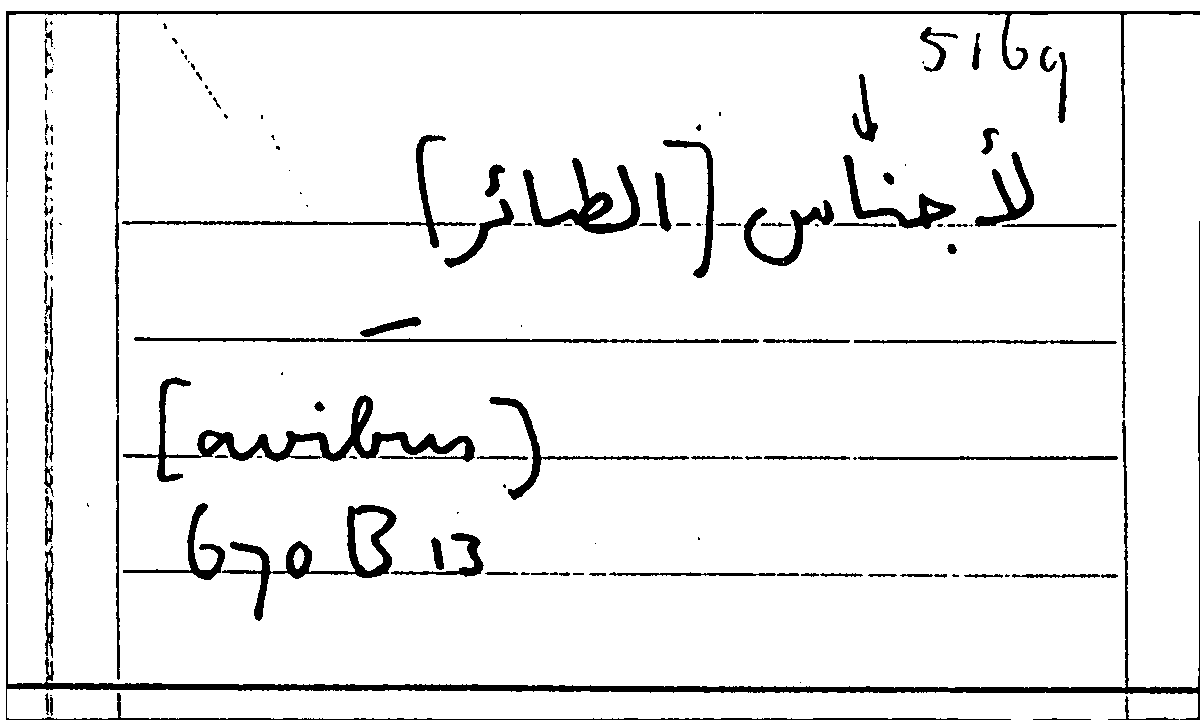 5169
↓
لأجناس [الطائر]
—
[avibus)
670 B 13